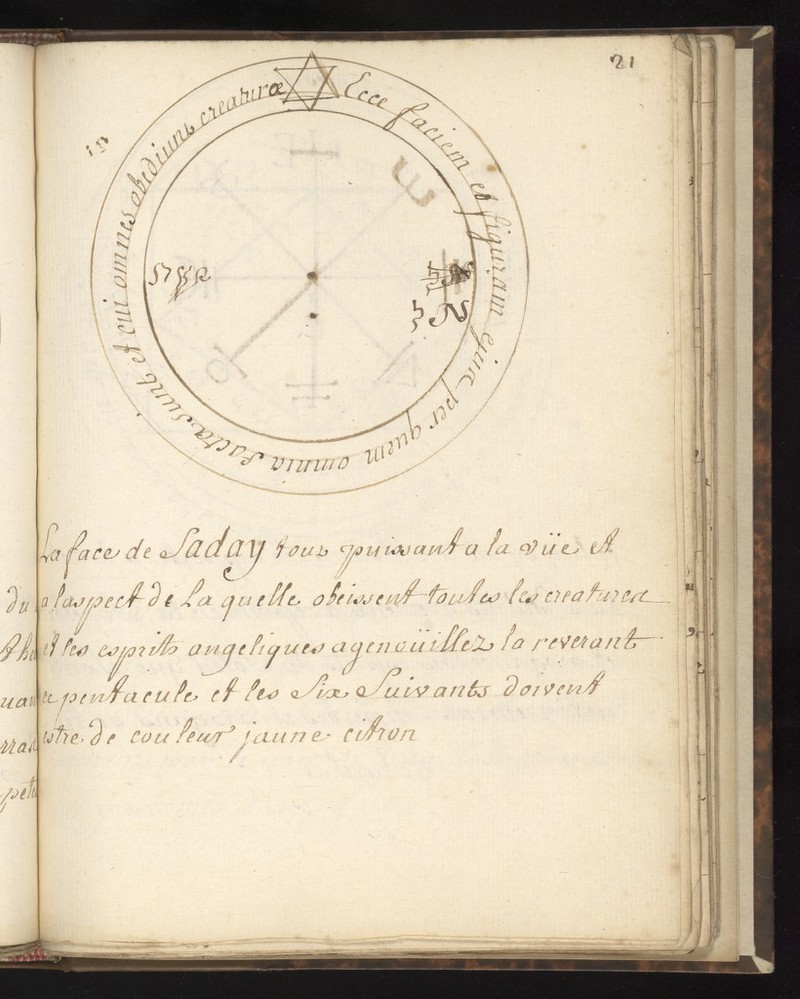 21
Ecce faciem et figuram ejus per quem omnia facta sunt et cui omnes obediunt creaturæ
La face de Saday tout puissant a la vüe et
a laspect de la quelle obeissent toutes les creatures
et les esprits angeliques agenoüillez la reverant
ce pentacule et les Six Suivants doivent
estre de couleur jaune citron
du